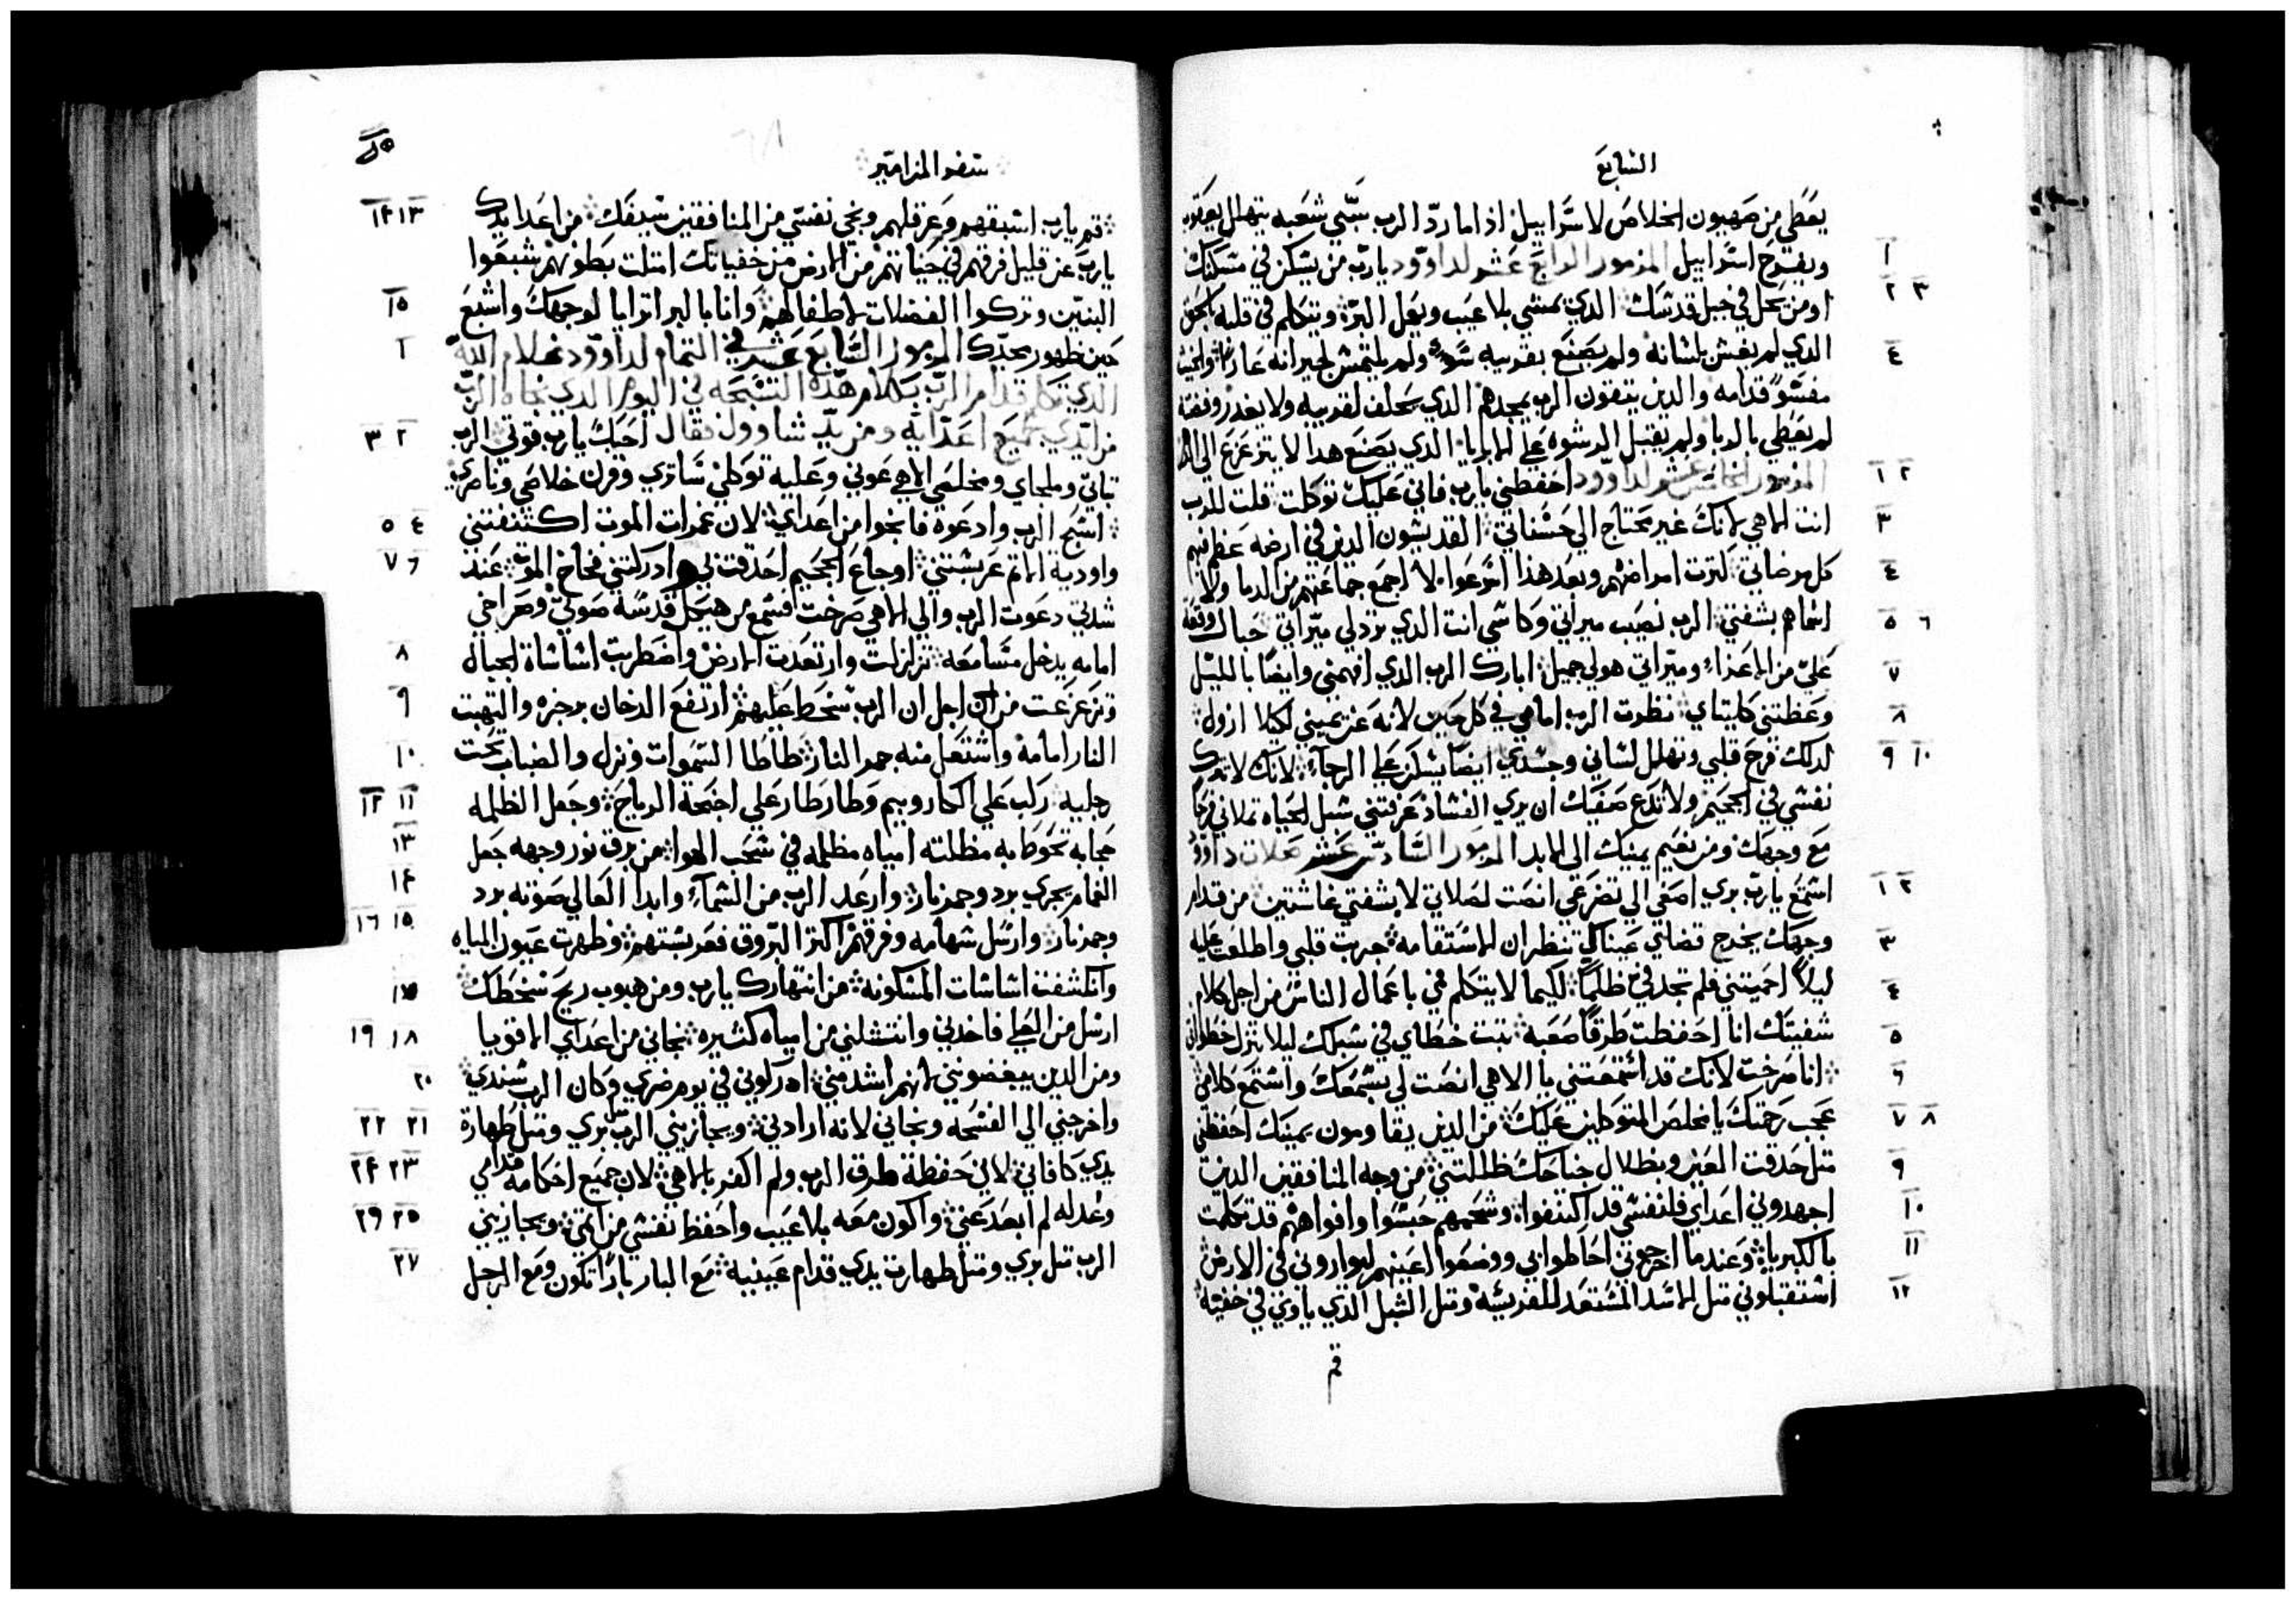 السابع
يعطي من صهيون الخلاص لاسراييل اذا ما ردّ الرب سبي شعبه يتهلل يعقوب
١ ويفرح اسراييل المزمور الرابع عشر لداوود يا ربّ من يسكن في مسكنك
٢ ٣ او من يحل في جبل قدسك الدي يمشي بلا عيب ويعمل البرّ ويتكلم في قلبه بالحق
٤ الدي لم يغش بلسانه ولم يصنع بقريبه سوءً ولم يلتمس لجيرانه عارًا
قدامه والدين يتقون الرب يمجدهم الدي يحلف لقريبه ولا يغدر وفضته
لم يعطي بالربا ولم يقبل الرشوه علي الابريا الدي يصنع هدا لا يتزعزع الي
١ ٢ المزمور الخامس عشر لداوود احفظني يا رب فاني عليك توكلت قلت للرب
٣ انت الاهي لانك غير محتاج الي حسناتي القديسون الدين في ارضه عظم فيهم
٤ كل مرضاتي كترت امراضهم وبعد هدا اسرعوا لا اجمع جماعتهم من الدما ولا
٥ ٦ اسماهم بشفتي الرب نصيب ميراتي وكاسي انت الدي ترد لي ميراتي حبال وقعه
٧ عليّ من الاعداء وميراتي هو لي جميل ابارك الرب الدي افهمني وايضًا بالليل
٨ وعظتني كليتاي نظرت الرب امامي في كل حين لانه عن يميني لكيلا ازول
٩ ١٠ لدلك فرح قلبي وتهلل لساني وجسدي ايضًا يسكن علي الرجاء لانك لا تترك
نفسي في الجحيم ولا تدع صفيك ان يري الفساد عرفتني سبل الحياه تملاني فرحًا
مع وجهك ومن نعيم يمينك الي الابد المزمور السادس عشر صلاة داوود
١ ٢ استمع يا ربّ بري اصغي الي تضرعي انصت لصلاتي لا بشفتي غاشتين من قدام
٣ وجهك يخرج قضاي عيناك تنظران الاستقامه جربت قلبي واطلعت عليه
٤ ليلًا احميتني فلم تجد فيّ ظلمًا لكيما لا يتكلم في باعمال الناس من اجل كلام
٥ شفتيك انا احفظت طرقًا صعبه تبت خطاي في سبلك ليلا تزل خطواتي
٦ انا صرخت لانك قد استمعتني يا الاهي انصت لي بسمعك واستمع كلامي
٧ ٨ عجب رحمتك يا مخلص المتوكلين عليك من الدين يقاومون يمينك احفظني
٩ متل حدقت العين وبظلال جناحك ظللتني من وجه المنافقين الدين
١٠ اجهدوني اعداي فلنفسي قد اكتنفوا وشحمهم حبسوا وافواههم قد تكلمت
١١ بالكبريا وعندما اخرجوني احاطوا بي ووضعوا اعينهم ليواروني في الارض
١٢ استقبلوني متل الاسد المستعد للفريسه ومتل الشبل الدي ياوي في خفيه
قم
سفر المزامير
١٣ ١٤ قم يا رب اسبقهم وعرقلهم ونجي نفسي من المنافقين سيفك من اعدا يدك
يا رب عن قليل فرقهم في حياتهم من الارض من خفياتك امتلت بطونهم شبعوا
١٥ البنين وتركوا الفضلات لاطفالهم وانا بالبر اترايا لوجهك واشبع
١ حين ظهور مجدك المزمور السابع عشر في التمام لداوود غلام الله
الدي تكلم قدام الربّ بكلام هده التسبحه في اليوم الدي نجاه الربّ
٢ ٣ من ايدي جميع اعدايه ومن يدّ شاوول فقال احبك يا رب قوتي الرب
تباتي وملجاي ومخلصي الاهي عوني وعليه توكلي ساتري وقرن خلاصي وناصري
٤ ٥ اسبح الرب وادعوه فانجوا من اعداي لان غمرات الموت اكتنفتني
٦ ٧ واودية الاتم عربستني اوجاع الجحيم احدقت بي وادركتني فخاخ الموت عند
شدتي دعوت الرب والي الاهي صرخت فسمع من هيكل قدسه صوتي وصراخي
٨ امامه يدخل مسامعه تزلزلت وارتعدت الارض واضطربت اساسات الجبال
٩ وتزعزعت من اجل ان الرب سخط عليهم ارتفع الدخان برجزه والتهبت
١٠ النار امامه واشتعل منه جمر النار طاطا السموات ونزل والضباب تحت
١١ ١٢ رجليه ركب علي الكاروبيم وطار طار علي اجنحة الرياح وجعل الظلمه
١٣ حجابه تحوط به مظلته امياه مظلمه في سحب الهوا من برق نور وجهه جعل
١٤ الغمام يجري برد وجمر نار وارعد الرب من السماء وابدا العالي صوته برد
١٥ ١٦ وجمر نار وارسل سهامه وفرقهم اكتر البروق فعربستهم وظهرت عيون المياه
١٧ وانكشفت اساسات المسكونه من انتهارك يا رب ومن هبوب ريح سخطك
١٨ ١٩ ارسل من العلي فاخدني وانتشلني من امياه كثيره نجاني من اعداي الاقويا
٢٠ ومن الدين يبغضونني لانهم اشد مني ادركوني في يوم ضري وكان الرب سندي
٢١ ٢٢ واخرجني الي الفسحه ونجاني لانه ارادني ويجازيني الربّ بري ومتل طهارة
٢٣ ٢٤ يدي كافاني لاني حفظة طرق الرب ولم اكفر بالاهي لان جميع احكامه قدامي
٢٥ ٢٦ وعدله لم ابعد عني واكون معه بلا عيب واحفظ نفسي من اتمي ويجازيني
٢٧ الرب متل بري ومتل طهارت يدي قدام عينيه مع البار بارًا تكون ومع الرجل